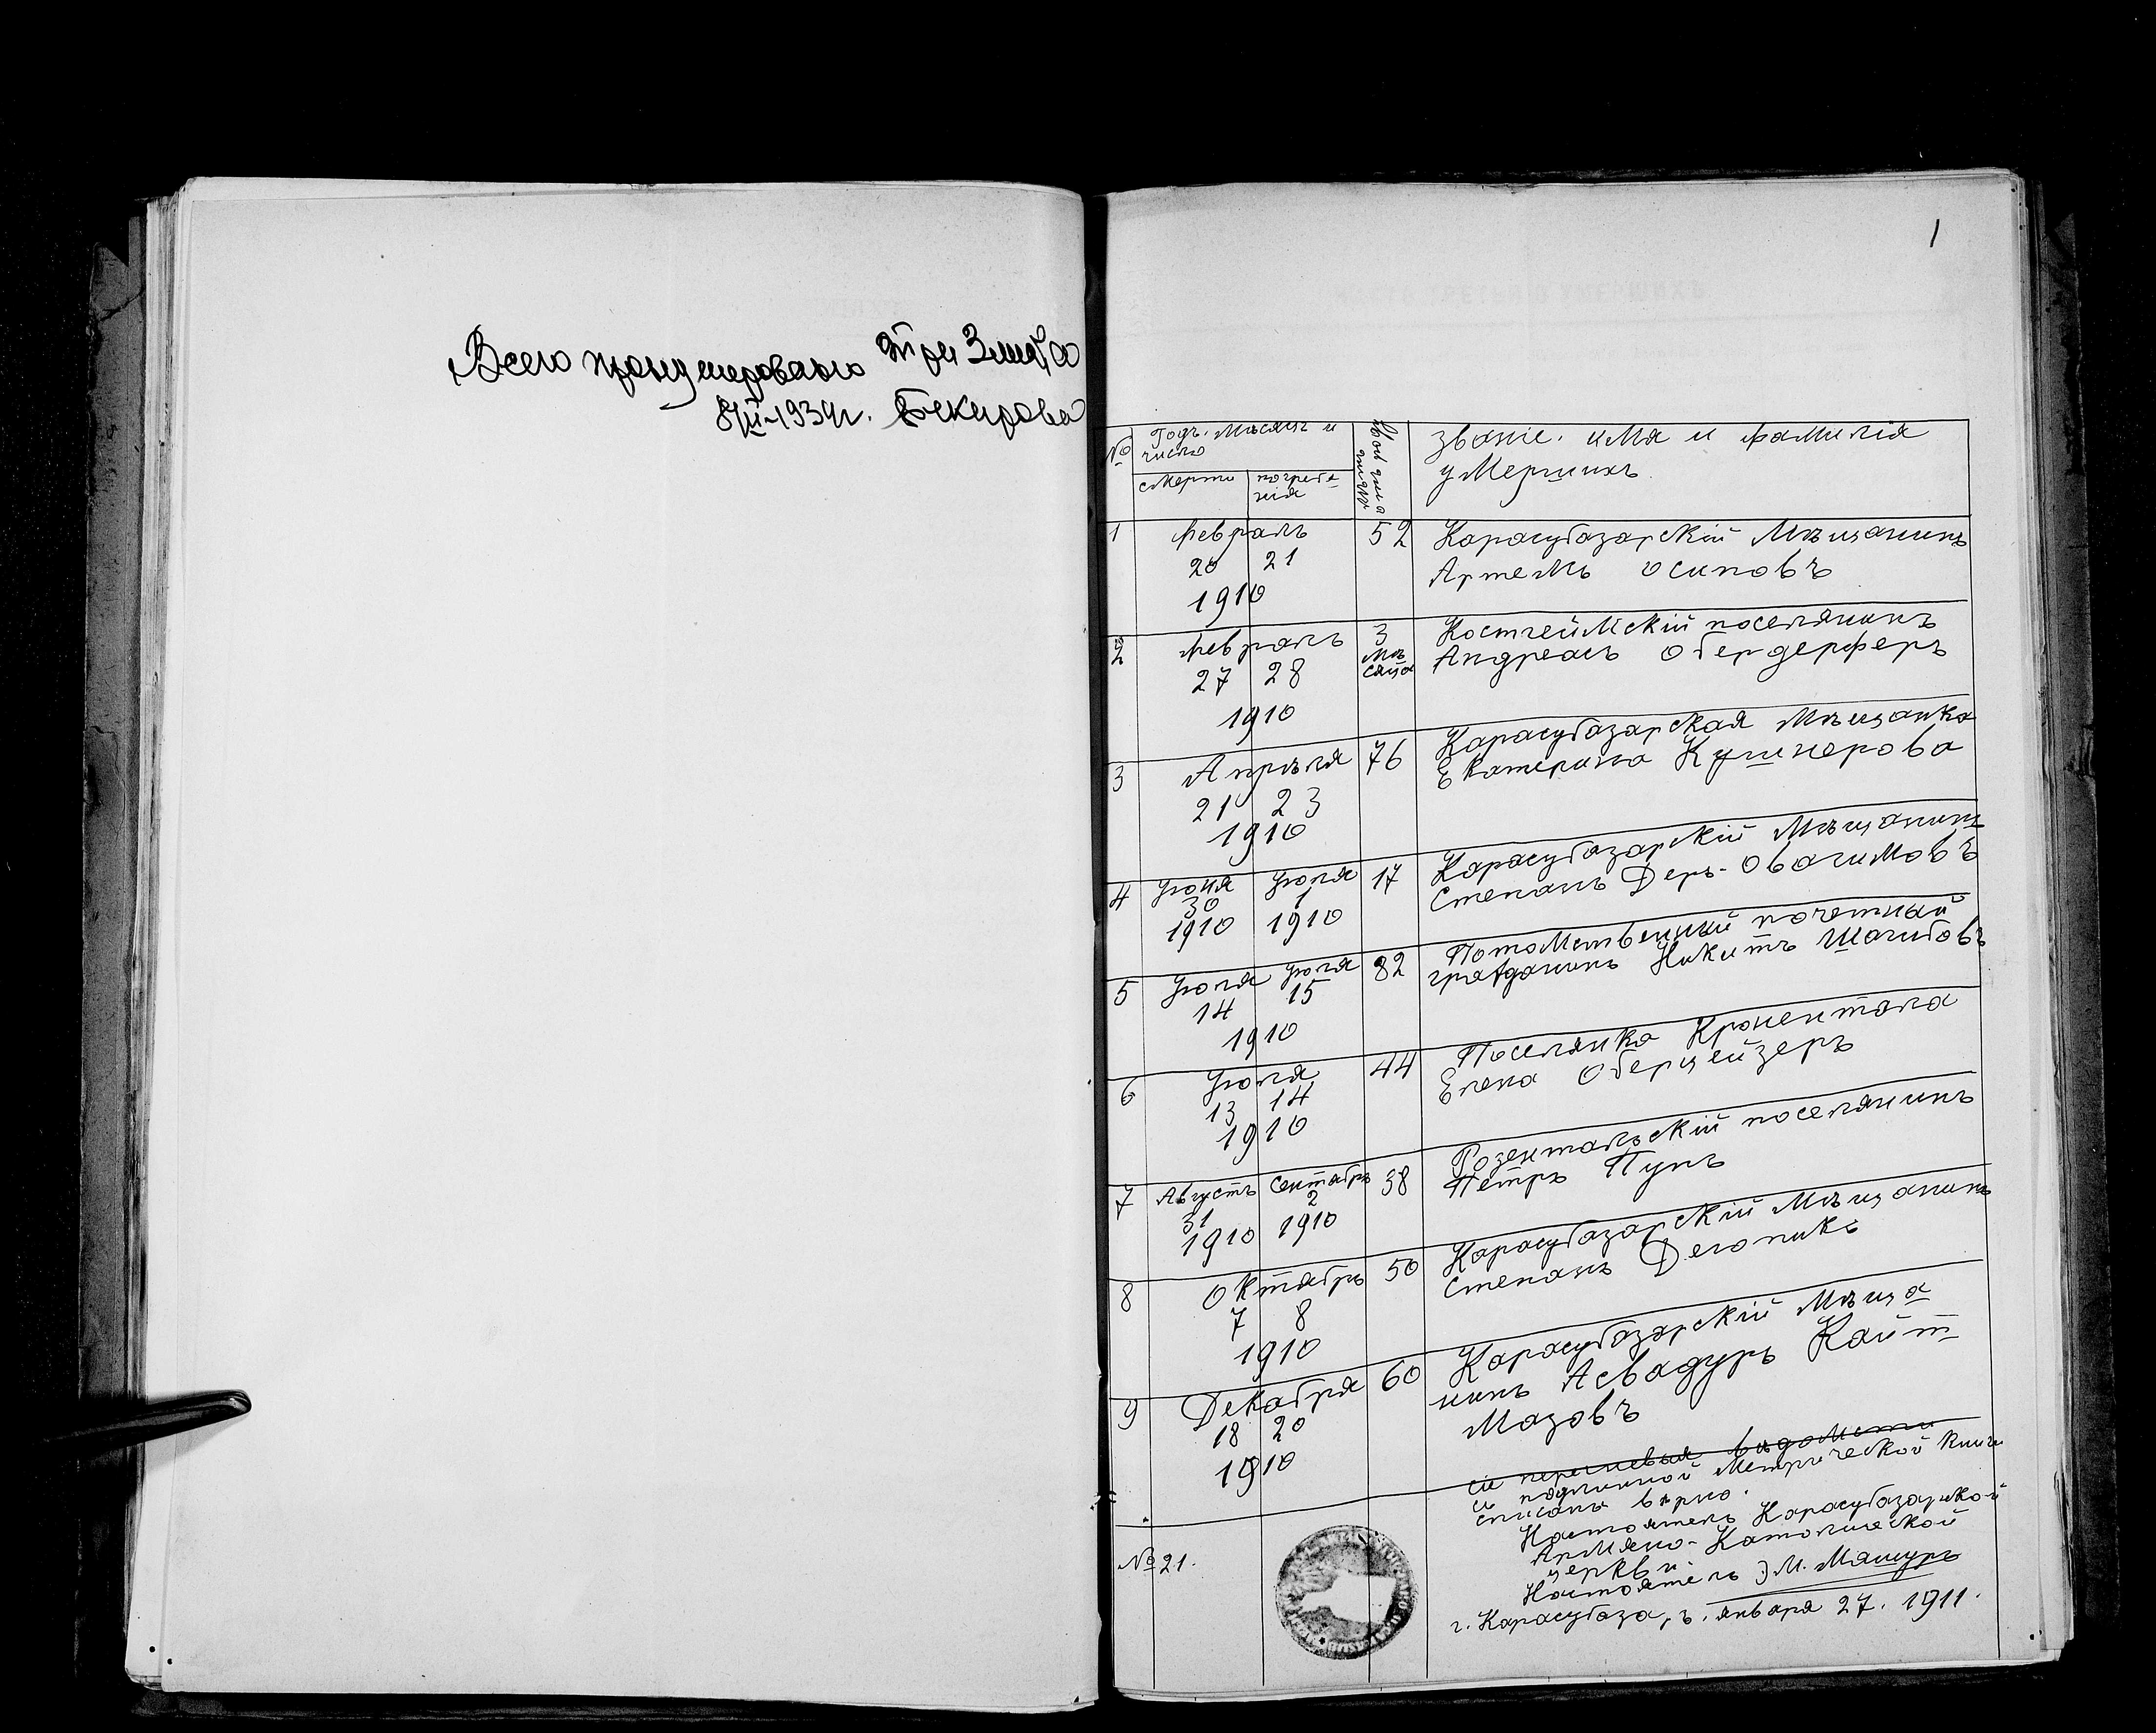 Всего пронумеровано три
8/III-1939г. Бекирова
1
№
Годъ. Мѣсяцъ и
число
смерти
погребе-
нія
звание. имя и фамилія
умершихъ
1
Февраль
20 21
1910
52
Карасубазарскій Мѣщанинъ
Артемъ Осиповъ
2
Февраль
27 28
1910
3
Мѣ
сяца
Костгеймскій поселянинъ
Андреасъ Обердерферъ
3
Апрѣля
21 23
1910
76
Карасубазарская Мѣщанка
Екатерина Кушнерова
4
Іюня Іюля
30 1
1910 1910
17
Карасубазарскій Мѣщанинъ
Степанъ Деръ-Овагимовъ
5
Іюля Іюля
14 15
1910
82
Потомственный почетный
гражданинъ Никитъ Шагибовъ
6
Іюля
13 14
1910
44
Поселянка Кронентала
Елена Оберцейзеръ
7
Августъ Сентябрь
31 2
1910 1910
38
Розентальскій поселянинъ
Петръ Пупъ
8
Октябрь
7 8
1910
50
Карасубазарскій Мѣщанинъ
Степанъ Делопикъ
9
Декабря
18 20
1910
60
Карасубазарскій Мѣща
нинъ Асвадуръ Кайт
мазовъ
вѣдомсти
съ подлинной Метрической книги
списанъ вѣрно.
Настоятель Карасубазарской
Армяно-Католической
церкви
Настоятель Э М. Машуръ
г. Карасубазаръ. января 27. 1911.
№ 21.